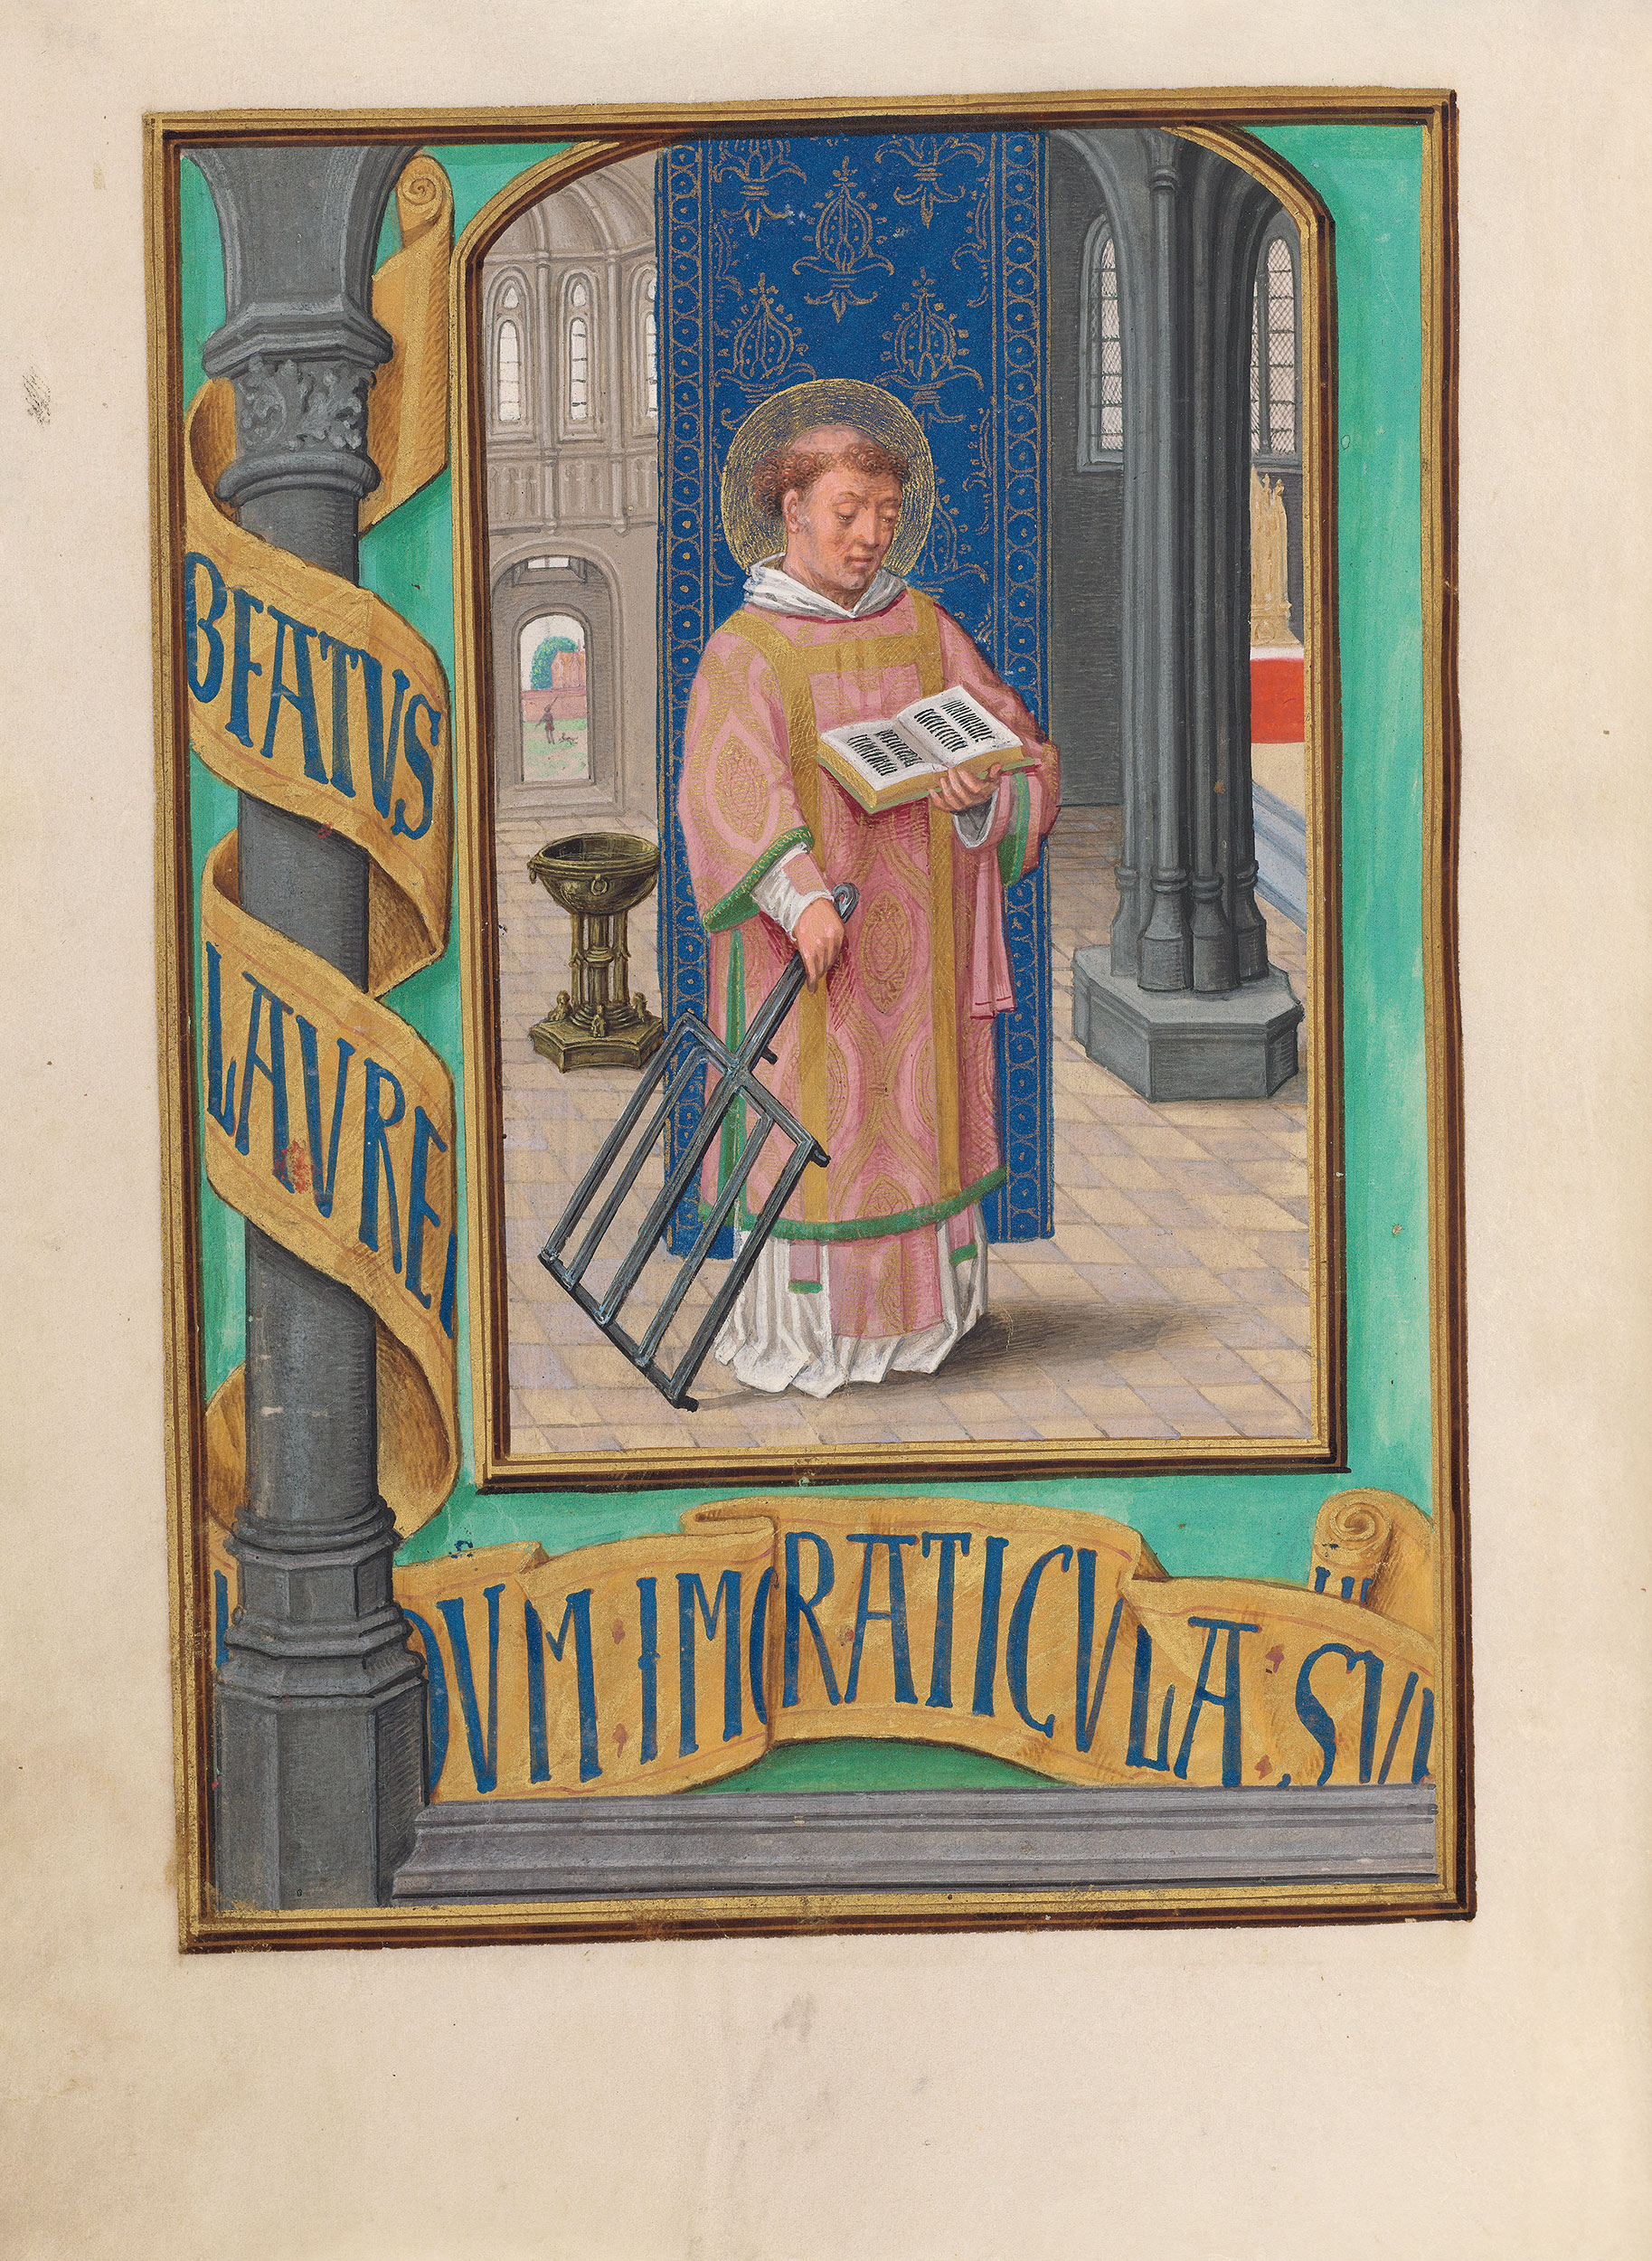 BEATVS
LAVRE
DVM · IM RATICVLA : SV